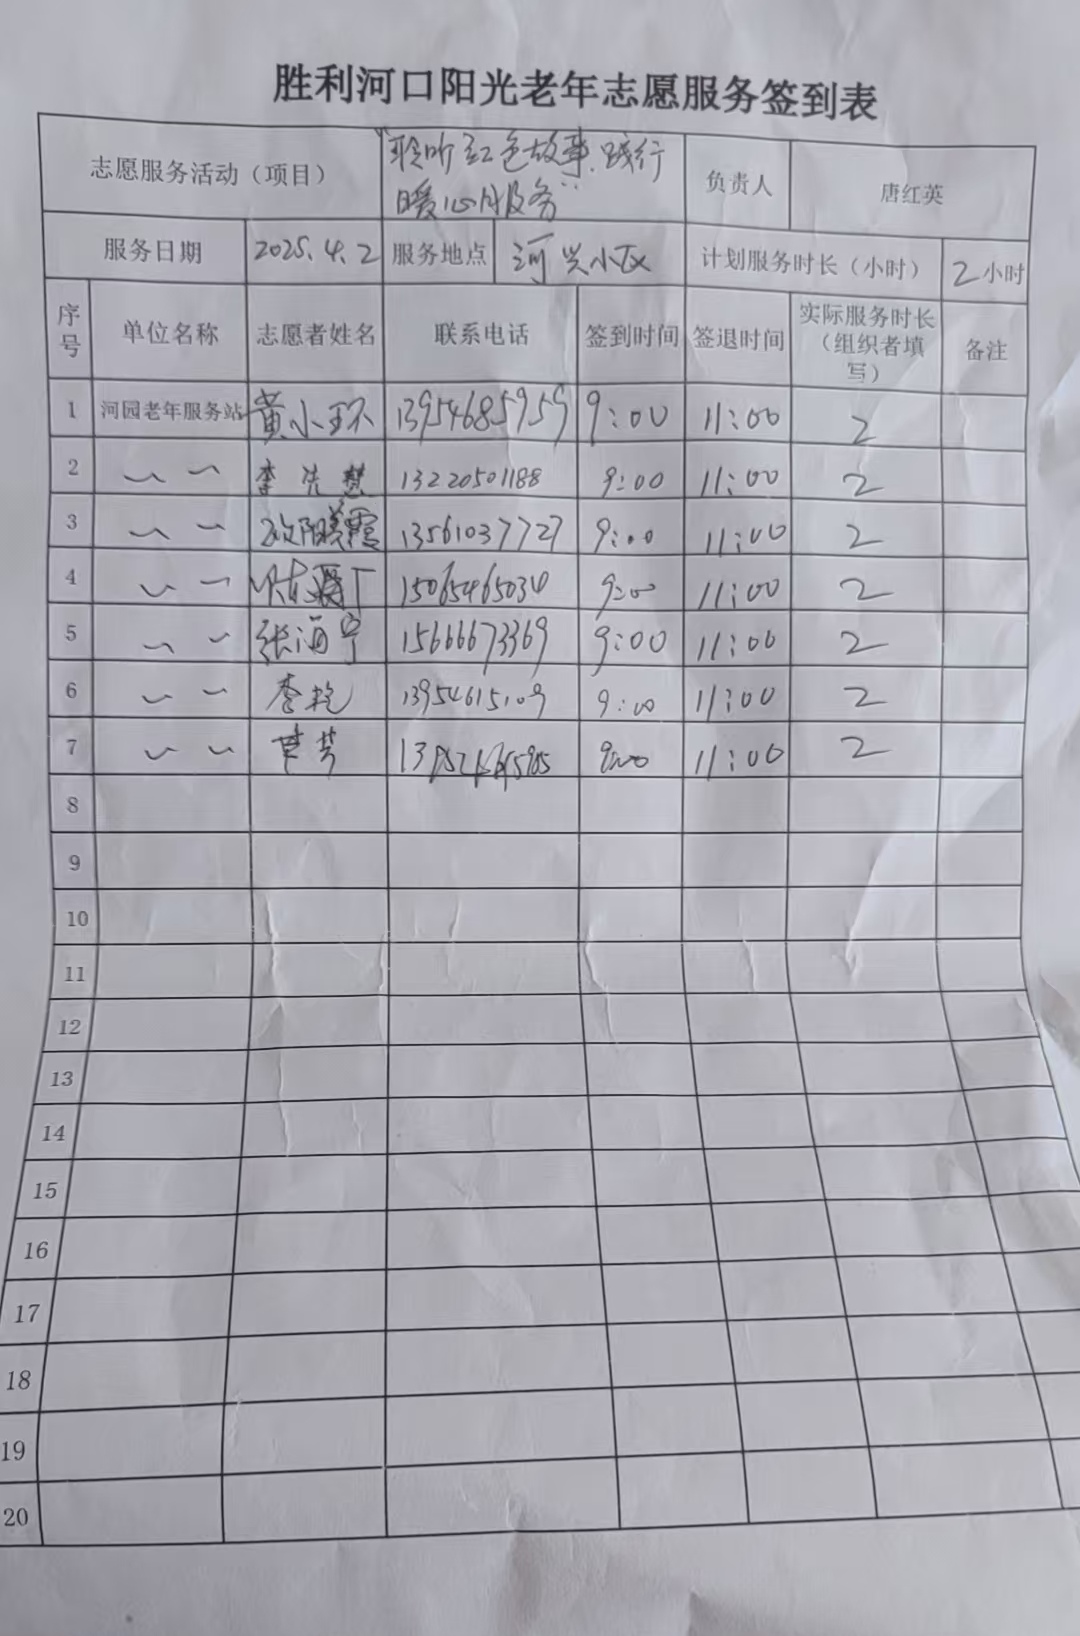 胜利河口阳光老年志愿服务签到表
志愿服务活动（项目） “聆听红色故事.践行 负责人 唐红英
暖心服务”
服务日期 2025.4.2 服务地点 河兴小区 计划服务时长（小时） 2小时
序号 单位名称 志愿者姓名 联系电话 签到时间 签退时间 实际服务时长（组织者填写） 备注
1 河园老年服务站 黄小环 13954685959 9:00 11:00 2
2 李先慧 13220501188 9:00 11:00 2
3 欧阳美霞 13561037727 9:00 11:00 2
4 15065465034 9:00 11:00 2
5 张海宁 15666673369 9:00 11:00 2
6 李艳 13954615109 9:00 11:00 2
7 9:00 11:00 2
8
9
10
11
12
13
14
15
16
17
18
19
20